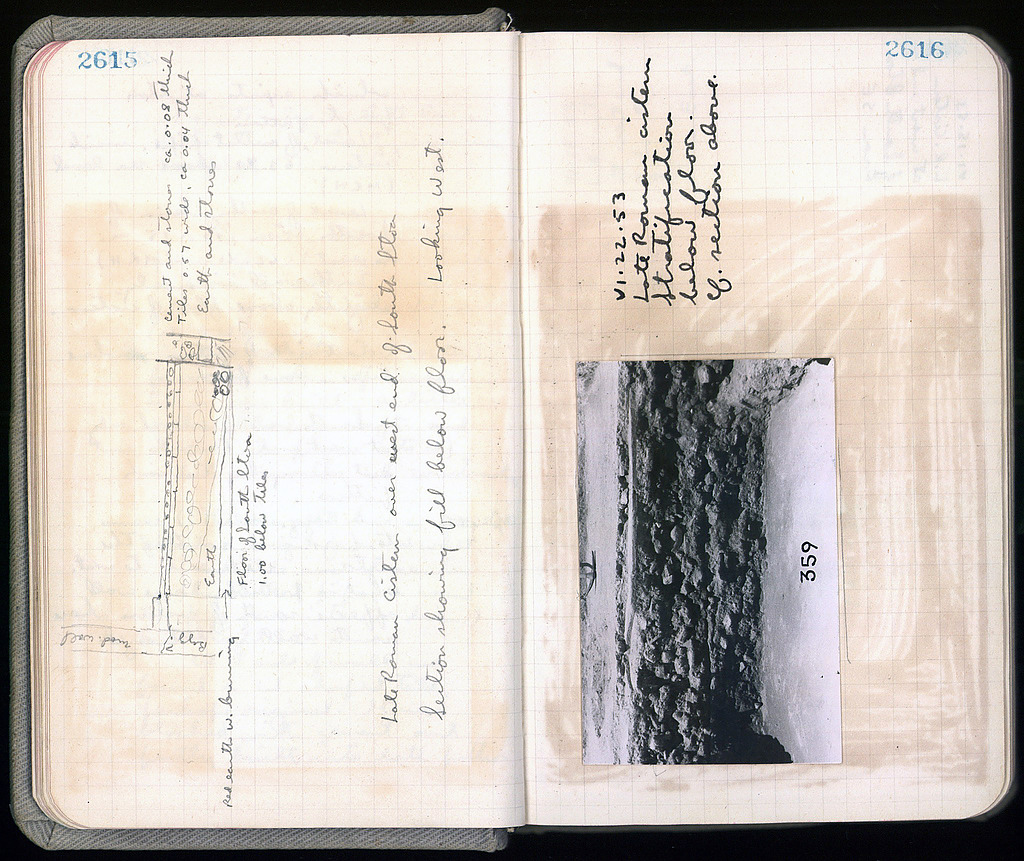 2615
cement and stones ca. 0.08 thick
Tiles 0.57 wide, ca 0.04 thick
Earth and stones
mod. wall
Earth
Red earth w. burning
Floor of South Stoa
1.00 below tiles
Late Roman cistern over east end of South Stoa
Section showing fill below floor. Looking West.
2616
VI.22.53
Late Roman cistern
stratification
below floor.
Cf. section above.
359